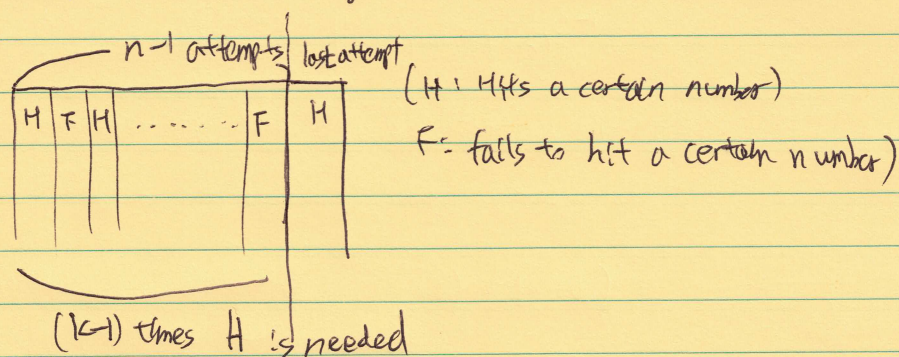 n-1 attempts last attempt
(H : Hits a certain number)
H F H ........ F H
F: fails to hit a certain number)
(k-1) times H is needed